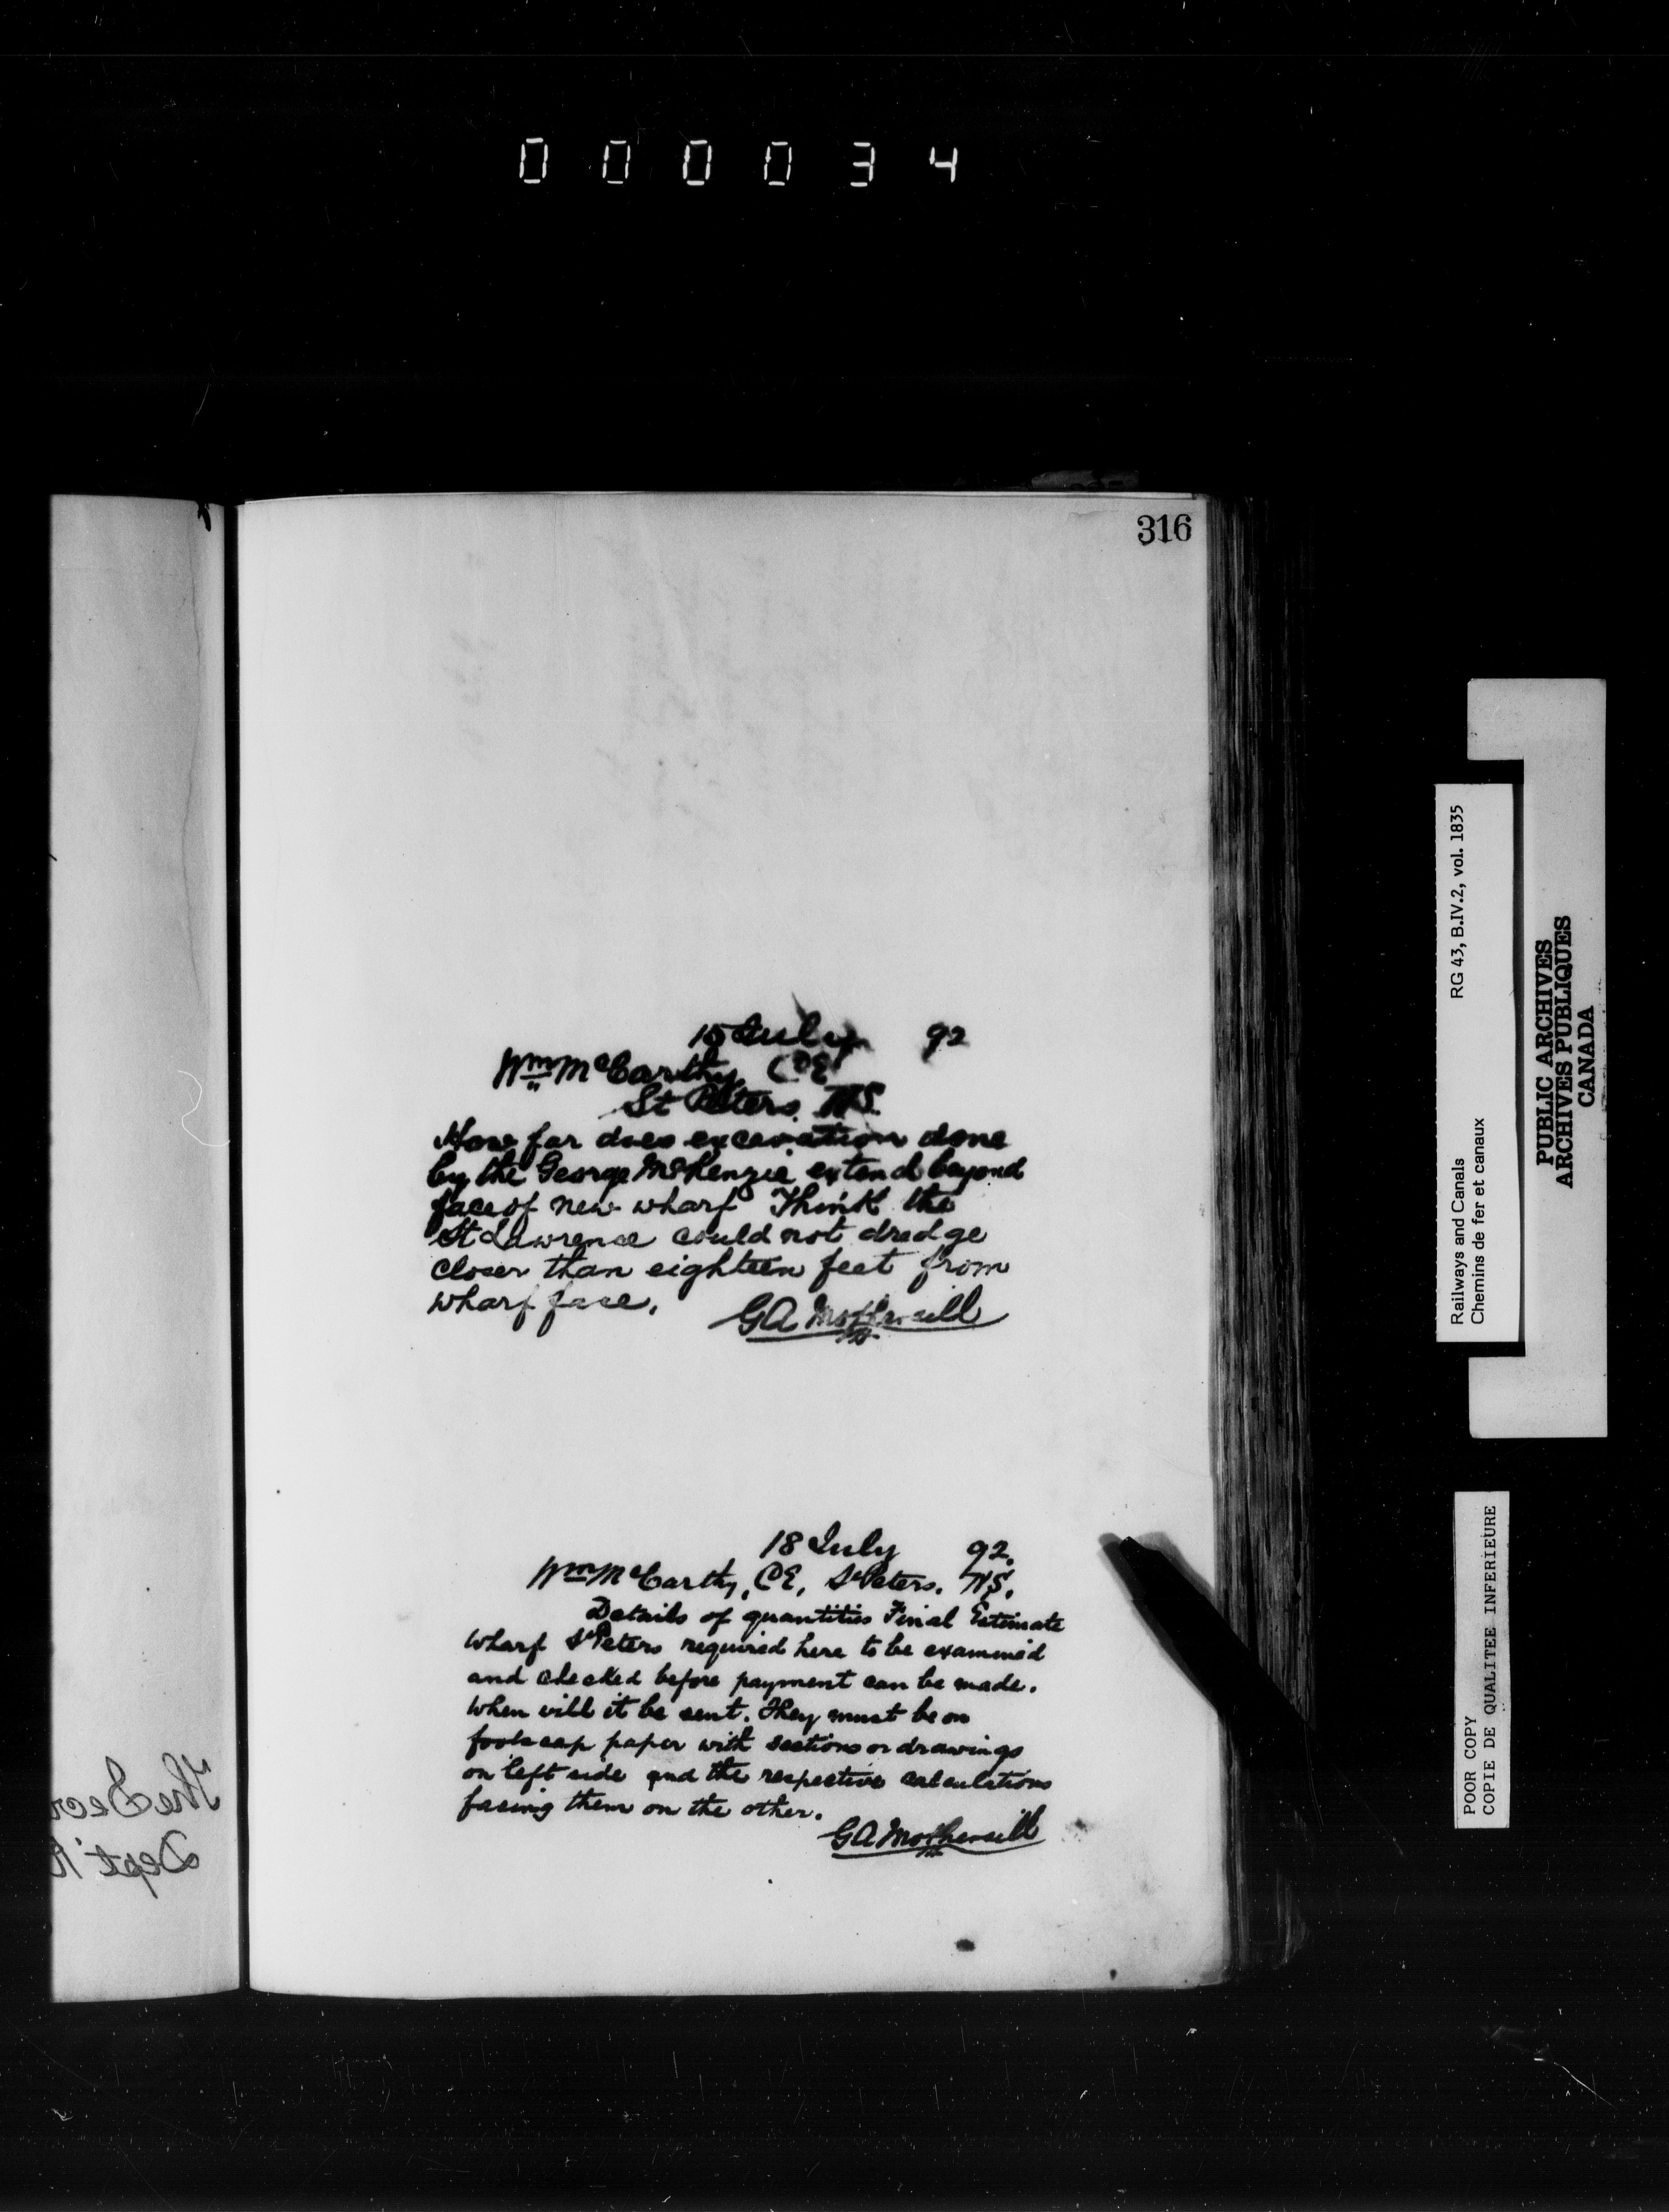 000034
316
15 July 92
Wm McCarthy, CE
St Peters, NS
How far does excavation done
by the George McKenzie extend beyond
face of new wharf Think the
St Lawrence could not dredge
closer than eighteen feet from
wharf face.
GA Mothersill
18 July 92.
Wm McCarthy, CE, St Peters. NS.
Details of quantities Final Estimate
wharf St Peters required here to be examined
and checked before payment can be made.
When will it be sent. They must be on
foolscap paper with sections or drawings
on left side and the respective calculations
facing them on the other.
GA Mothersill
The Secr
Dept R
Railways and Canals RG 43, B.IV.2, vol. 1835
Chemins de fer et canaux
PUBLIC ARCHIVES
ARCHIVES PUBLIQUES
CANADA
POOR COPY
COPIE DE QUALITEE INFERIEURE